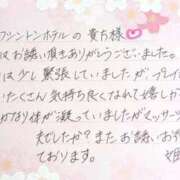 ワシントンホテルの貴方様
はお誘い頂きありがとうございました。
は少し緊張していましたが、プレイ
たくさん気持ち良くなれて嬉しか
かなり体が凝っていましたがマッサー
夫でしたか？またお誘いお
ております。